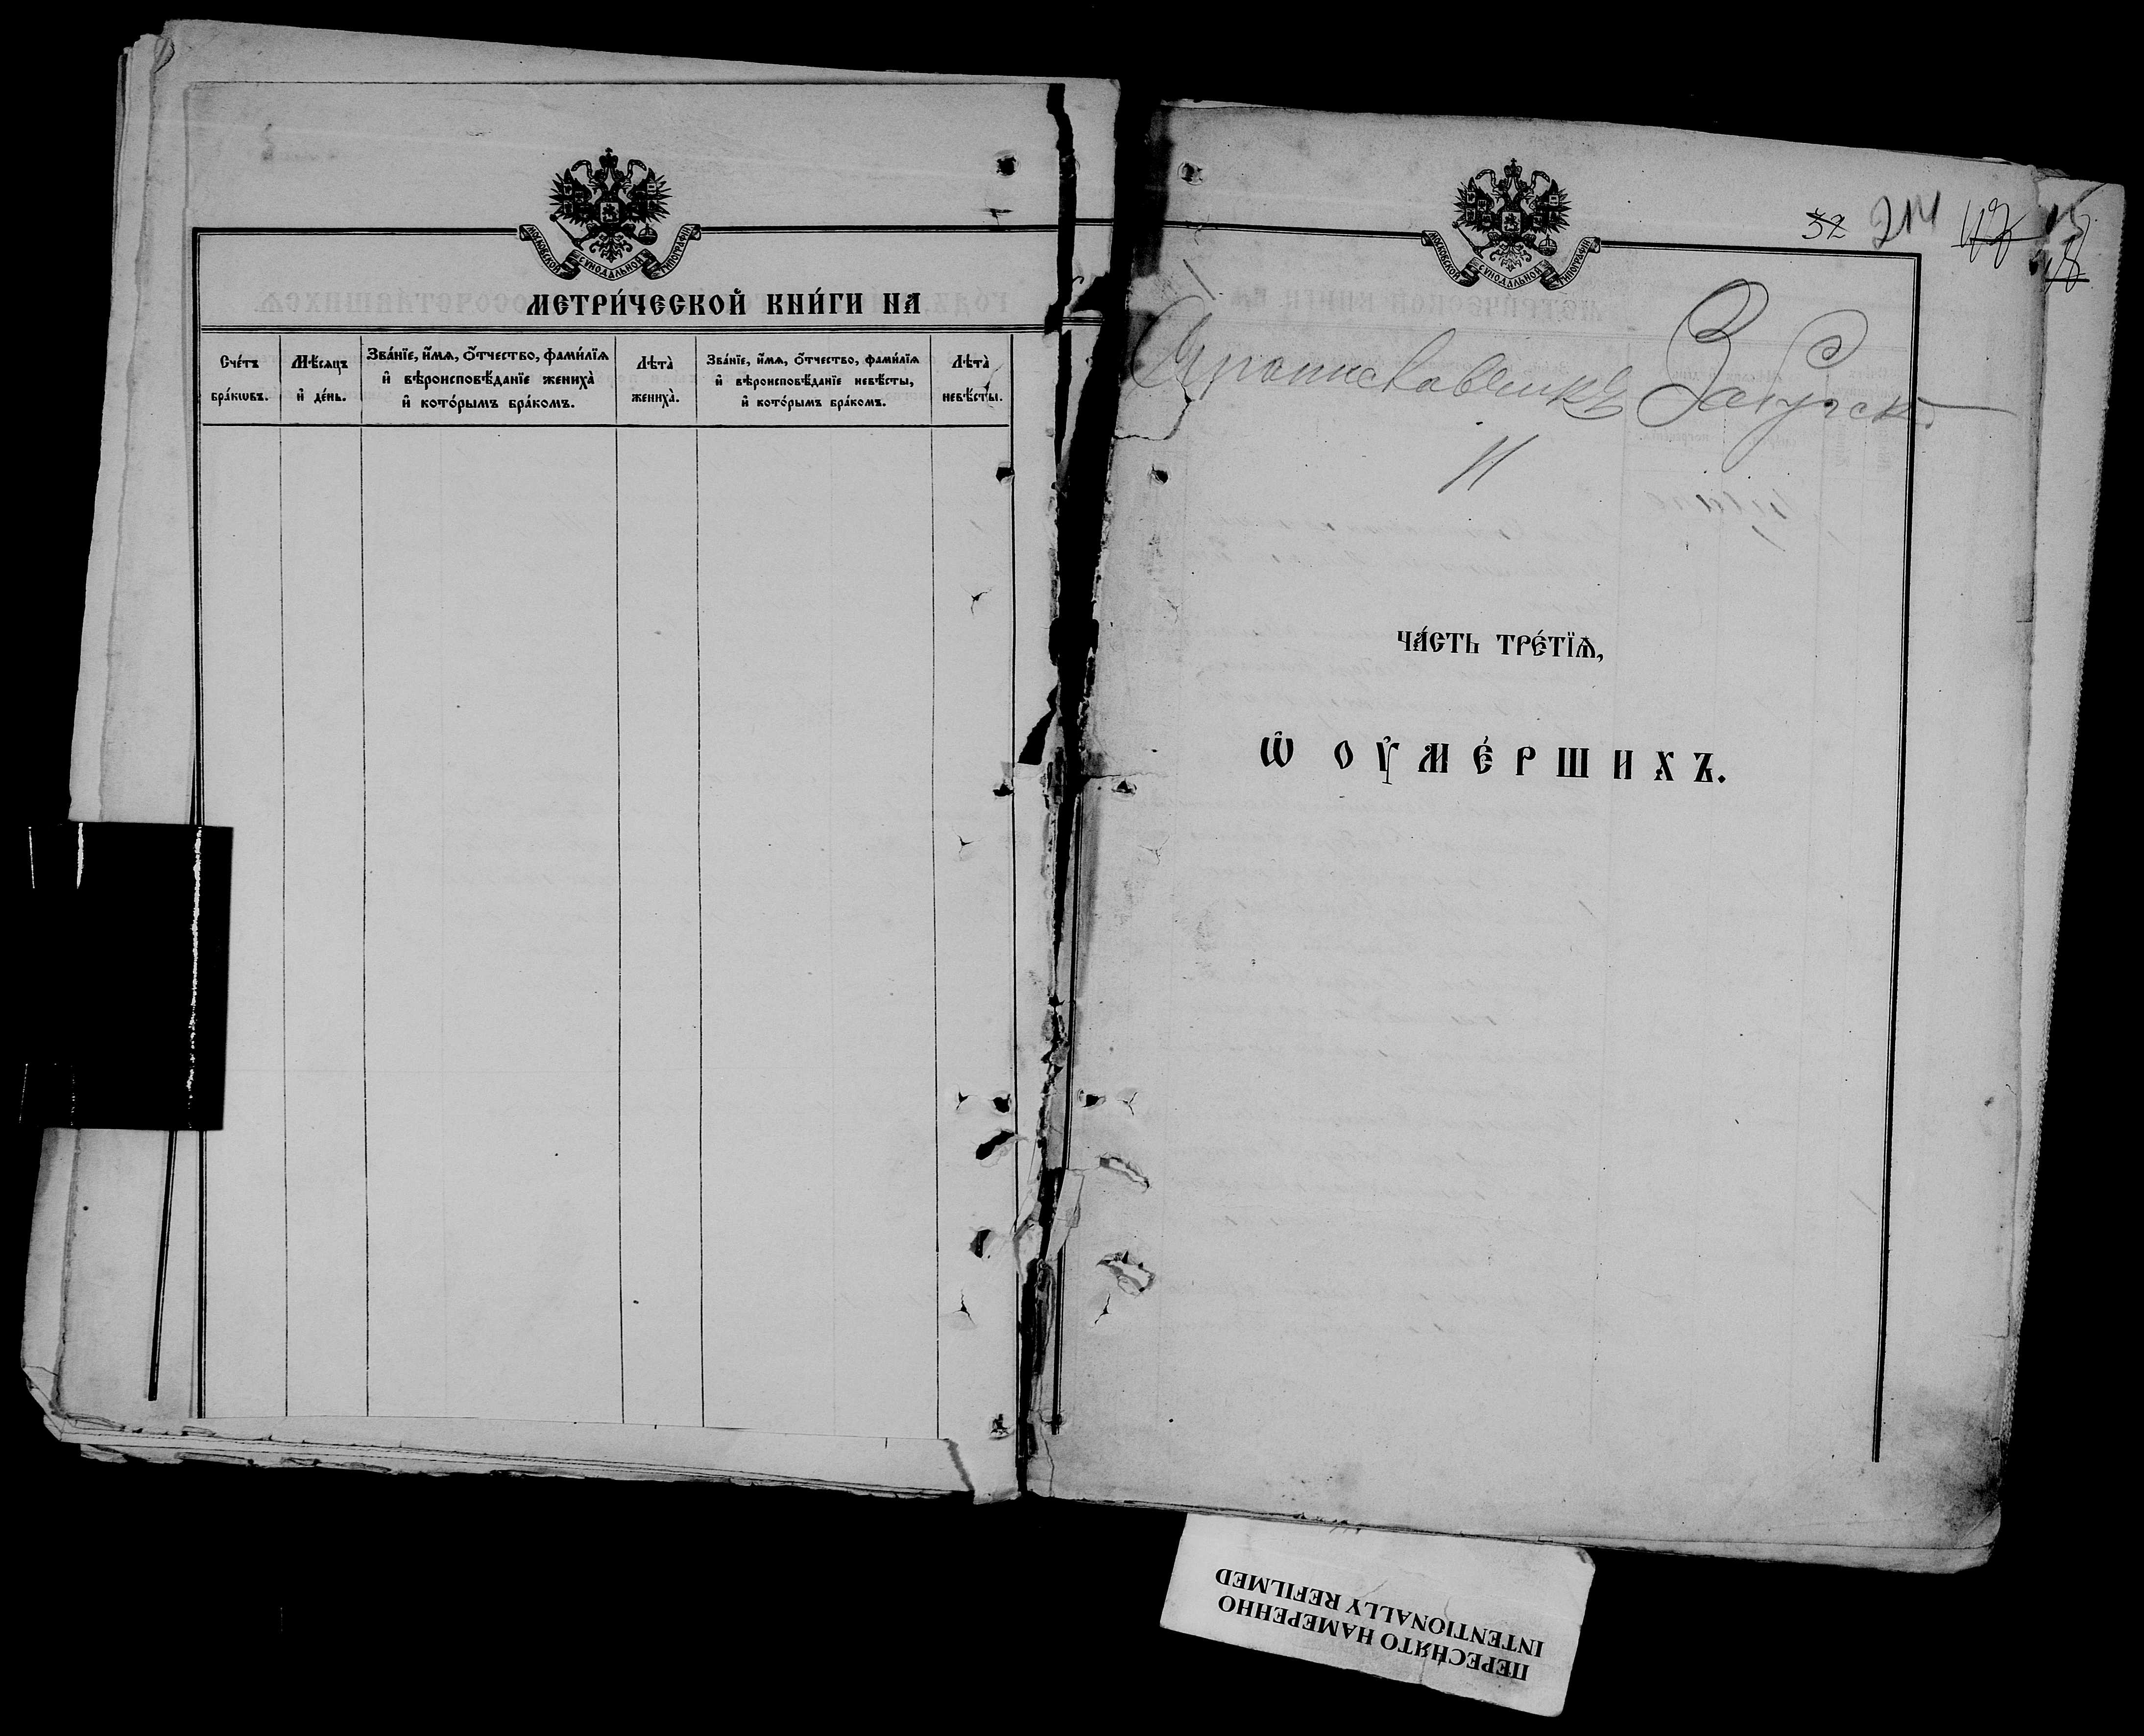 МОСКОВСКОЙ СѴНОДАЛЬНОЙ ТИПОГРАФІИ
МЕТРИ́ЧЕСКОЙ КНИ́ГИ НА
Сче́тъ бра́кѡвъ.
Мѣ́сяцъ и҆ де́нь.
Зва́нїе, и҆́мя, ѻ҆́тчество, фами́лїя и҆ вѣроисповѣ́данїе жениха̀ и҆ кото́рымъ бра́комъ.
Лѣта̀ жениха̀.
Зва́нїе, и҆́мя, ѻ҆́тчество, фами́лїя и҆ вѣроисповѣ́данїе невѣ́сты, и҆ кото́рымъ бра́комъ.
Лѣта̀ невѣ́сты.
МОСКОВСКОЙ СѴНОДАЛЬНОЙ ТИПОГРАФІИ
32 214
ЧА́СТЬ ТРЕ́ТЇѦ,
Ѡ҆ ОУ҆МЕ́РШИХЪ.
ПЕРЕСНЯТО НАМЕРЕННО
INTENTIONALLY REFILMED